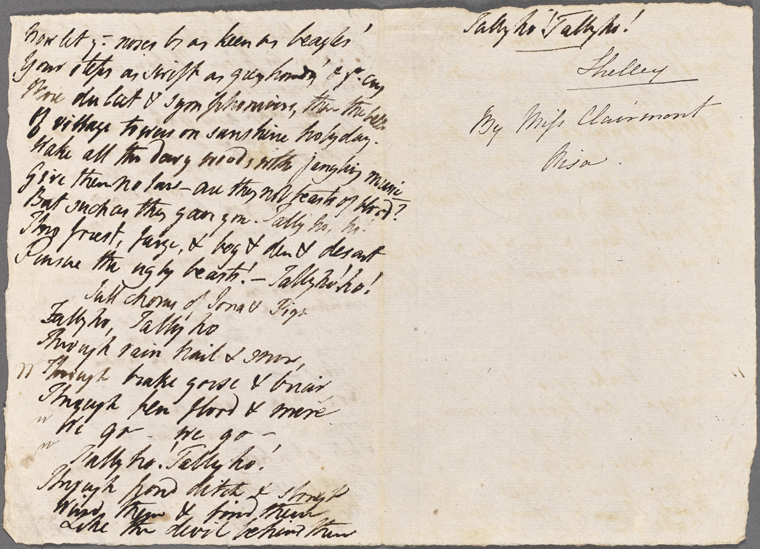 Now let yr noses be as keen as beagles'
Your steps as swift as greyhounds', & yr cry
More dulcet & symphonious than the bells
Of village towers on sunshine holyday.
Wake all the dewy woods with jangling music
Give them no law - are they not beasts of blood?
But such as they gave you. Tally ho, ho!
Thro forest, furze, & bog & den & desart
Pursue the ugly beasts! - Tallyho! ho!
Full chorus of Iona &
Tallyho, Tally ho
Through rain hail & snow,
Through brake gorse & briar
Through fen flood & mire
We go - we go -
Tally ho! Tally ho!
Through pond ditch & slough
Wind them & find them
Like the devil behind them
Tally ho! Tally ho!
Shelley
By Miss Clairmont
Pisa.